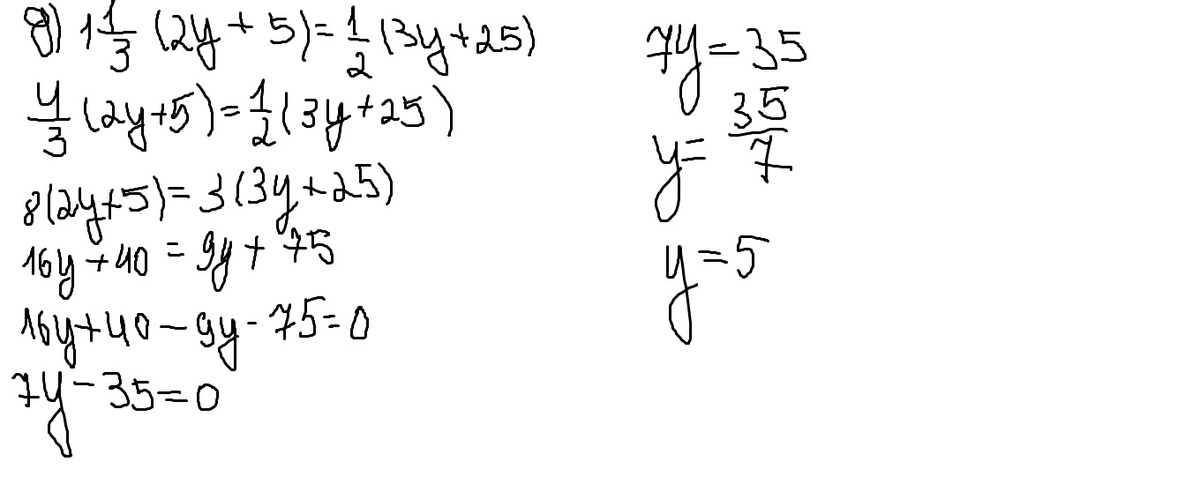 g) 1 1/3 (2y + 5) = 1/2 (3y + 25)
4/3 (2y + 5) = 1/2 (3y + 25)
8(2y + 5) = 3(3y + 25)
16y + 40 = 9y + 75
16y + 40 - 9y - 75 = 0
7y - 35 = 0
7y = 35
y = 35/7
y = 5